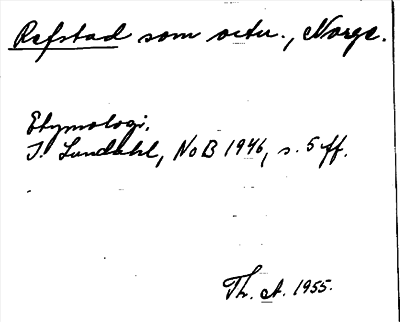 Refstad som ortn., Norge.
Etymologi.
I. Lundahl, NoB 1946, s. 5 ff.
Th. A. 1955.